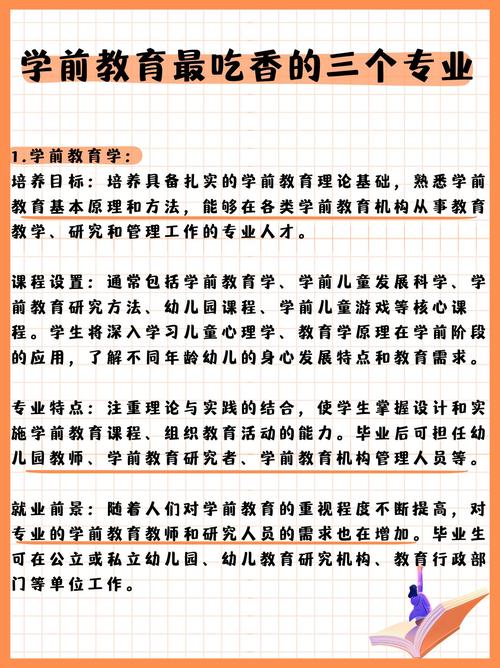 学前教育最吃香的三个专业
1.学前教育学：
培养目标：培养具备扎实的学前教育理论基础，熟悉学前
教育基本原理和方法，能够在各类学前教育机构从事教育
教学、研究和管理工作的专业人才。
课程设置：通常包括学前教育学、学前儿童发展科学、学
前教育研究方法、幼儿园课程、学前儿童游戏等核心课
程。学生将深入学习儿童心理学、教育学原理在学前阶段
的应用，了解不同年龄幼儿的身心发展特点和教育需求。
专业特点：注重理论与实践的结合，使学生掌握设计和实
施学前教育课程、组织教育活动的能力。毕业后可担任幼
儿园教师、学前教育研究者、学前教育机构管理人员等。
就业前景：随着人们对学前教育的重视程度不断提高，对
专业的学前教育教师和研究人员的需求也在增加。毕业生
可在公立或私立幼儿园、幼儿教育研究机构、教育行政部
门等单位工作。